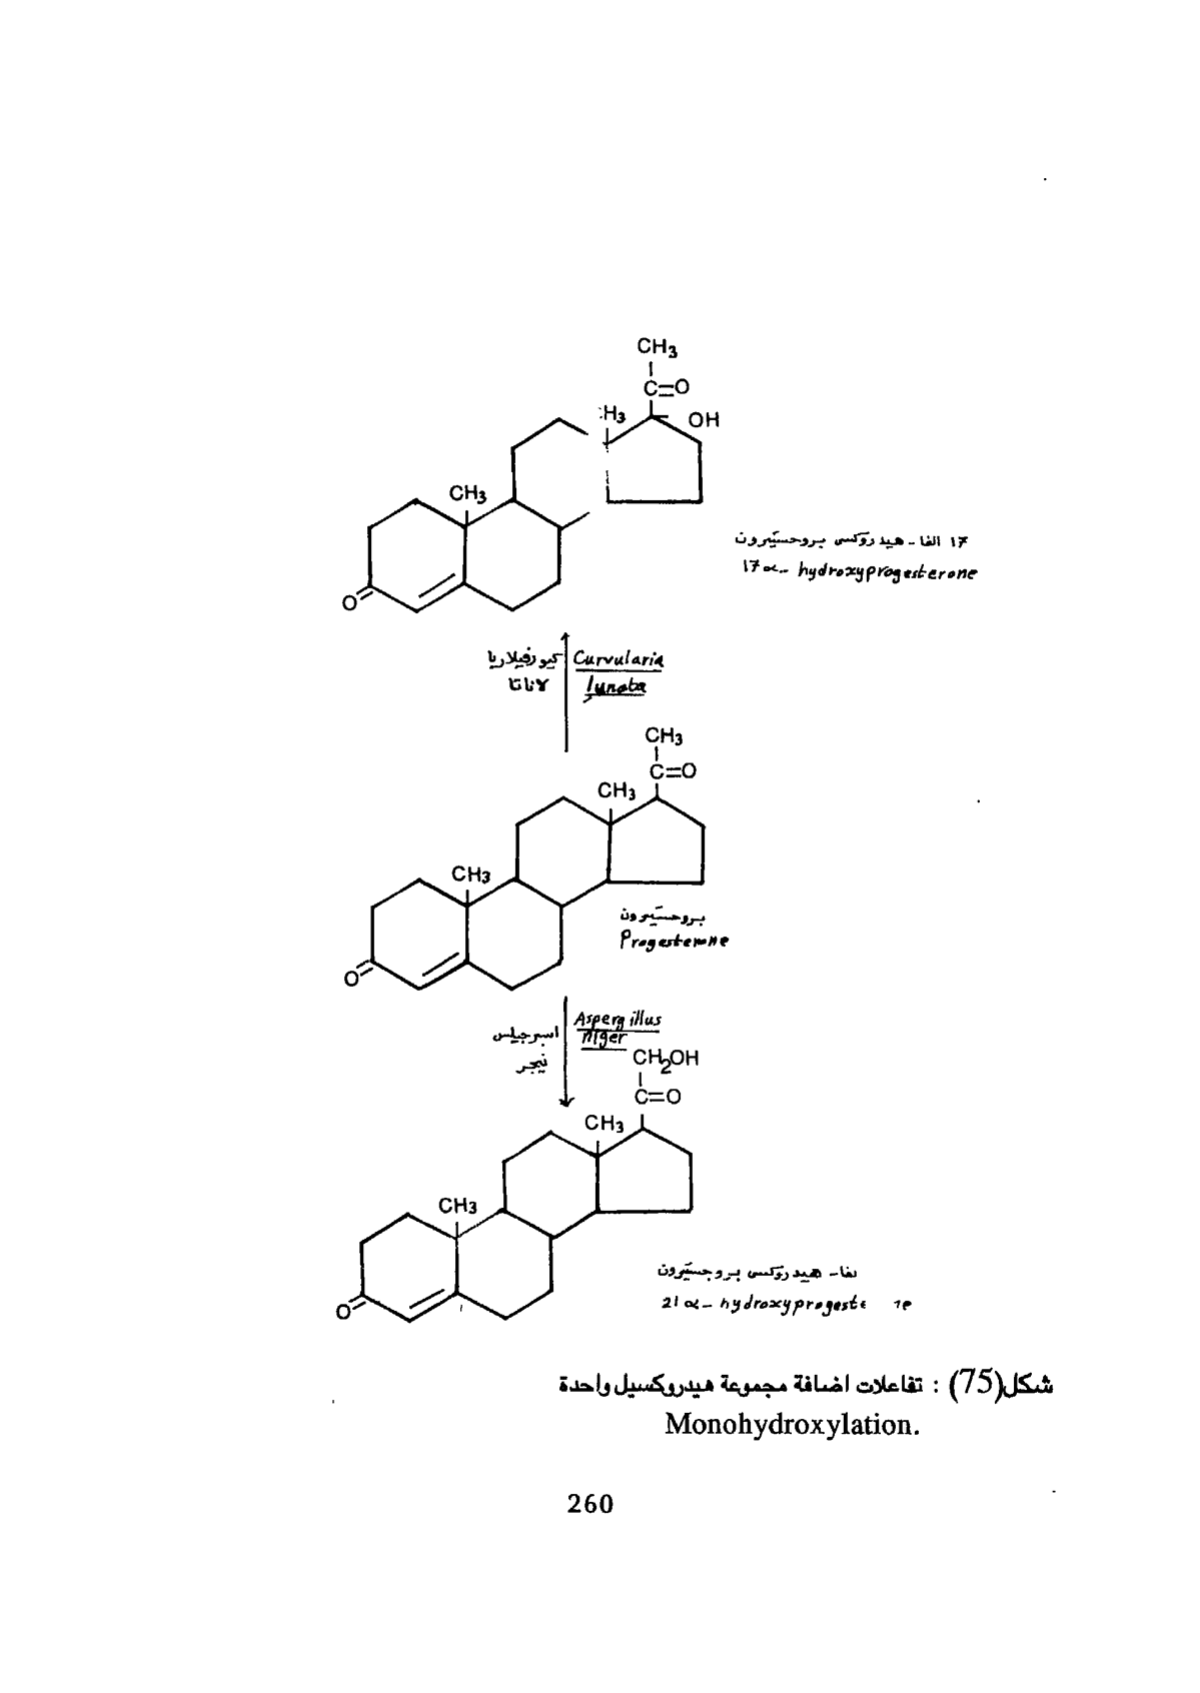 CH3
C=O
:H3
OH
CH3
O
17 الفا - هيدروكسى بروجستيرون
17α- hydroxyprogesterone
كيورفيلاريا
لاناتا
Curvularia
lunata
CH3
C=O
CH3
CH3
O
بروجستيرون
Progesterone
اسبرجيلس
نيجر
Aspergillus
niger
CH2OH
C=O
CH3
CH3
O
لفا - هيدروكسى بروجستيرون
21 α- hydroxyprogeste
شكل(75) : تفاعلات اضافة مجموعة هيدروكسيل واحدة
Monohydroxylation.
260